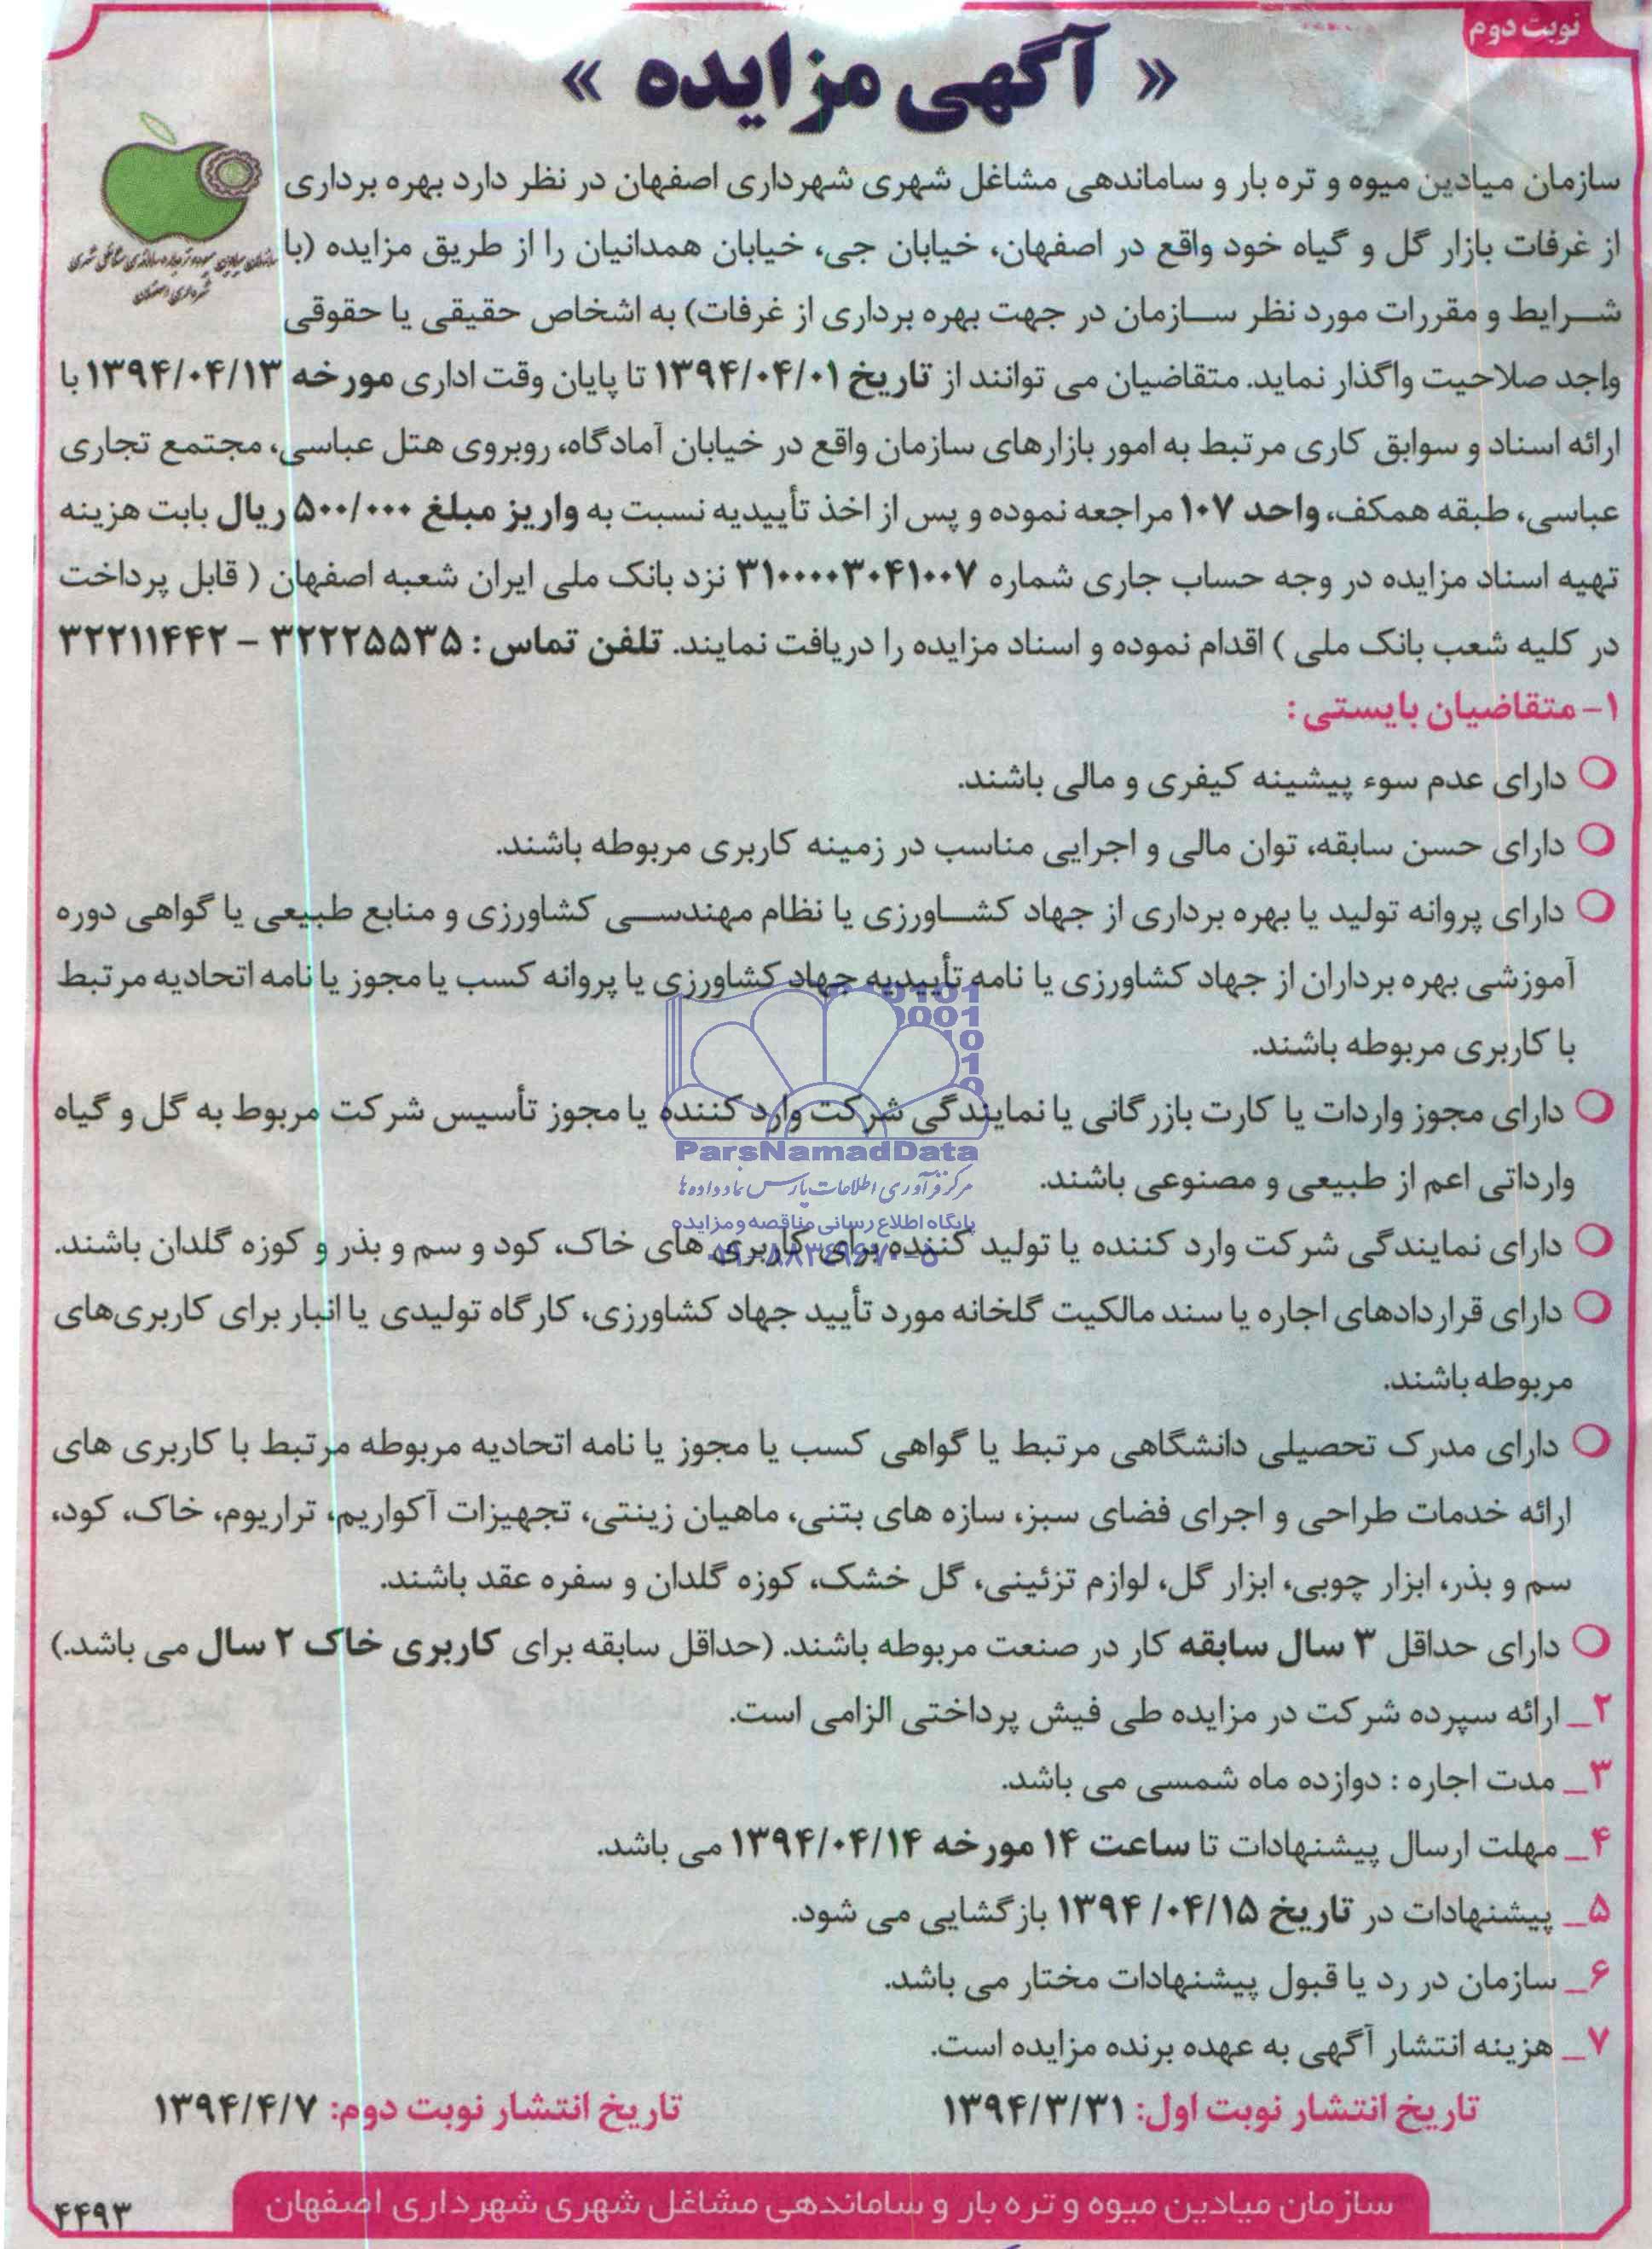 نوبت دوم
« آگهی مزایده »
سازمان میادین میوه و تره بار و ساماندهی مشاغل شهری شهرداری اصفهان در نظر دارد بهره برداری
از غرفات بازار گل و گیاه خود واقع در اصفهان، خیابان جی، خیابان همدانیان را از طریق مزایده (با
شرایط و مقررات مورد نظر سازمان در جهت بهره برداری از غرفات) به اشخاص حقیقی یا حقوقی
سازمان میادین میوه و تره بار و ساماندهی مشاغل شهری
شهرداری اصفهان
واجد صلاحیت واگذار نماید. متقاضیان می توانند از تاریخ ۱۳۹۴/۰۴/۰۱ تا پایان وقت اداری مورخه ۱۳۹۴/۰۴/۱۳ با
ارائه اسناد و سوابق کاری مرتبط به امور بازارهای سازمان واقع در خیابان آمادگاه، روبروی هتل عباسی، مجتمع تجاری
عباسی، طبقه همکف، واحد ۱۰۷ مراجعه نموده و پس از اخذ تأییدیه نسبت به واریز مبلغ ۵۰۰/۰۰۰ ریال بابت هزینه
تهیه اسناد مزایده در وجه حساب جاری شماره ۳۱۰۰۰۰۳۰۴۱۰۰۷ نزد بانک ملی ایران شعبه اصفهان ( قابل پرداخت
در کلیه شعب بانک ملی ) اقدام نموده و اسناد مزایده را دریافت نمایند. تلفن تماس : ۳۲۲۲۵۵۳۵ – ۳۲۲۱۱۴۴۲
۱- متقاضیان بایستی :
دارای عدم سوء پیشینه کیفری و مالی باشند.
دارای حسن سابقه، توان مالی و اجرایی مناسب در زمینه کاربری مربوطه باشند.
دارای پروانه تولید یا بهره برداری از جهاد کشاورزی یا نظام مهندسی کشاورزی و منابع طبیعی یا گواهی دوره
آموزشی بهره برداران از جهاد کشاورزی یا نامه تأییدیه جهاد کشاورزی یا پروانه کسب یا مجوز یا نامه اتحادیه مرتبط
با کاربری مربوطه باشند.
دارای مجوز واردات یا کارت بازرگانی یا نمایندگی شرکت وارد کننده یا مجوز تأسیس شرکت مربوط به گل و گیاه
وارداتی اعم از طبیعی و مصنوعی باشند.
ParsNamadData
مرکز فرآوری اطلاعات پارس نماد داده ها
پایگاه اطلاع رسانی مناقصه و مزایده
۰۲۱-۸۸۳۴۹۶۷۰-۵
دارای نمایندگی شرکت وارد کننده یا تولید کننده برای کاربری های خاک، کود و سم و بذر و کوزه گلدان باشند.
دارای قراردادهای اجاره یا سند مالکیت گلخانه مورد تأیید جهاد کشاورزی، کارگاه تولیدی یا انبار برای کاربری‌های
مربوطه باشند.
دارای مدرک تحصیلی دانشگاهی مرتبط یا گواهی کسب یا مجوز یا نامه اتحادیه مربوطه مرتبط با کاربری های
ارائه خدمات طراحی و اجرای فضای سبز، سازه های بتنی، ماهیان زینتی، تجهیزات آکواریم، تراریوم، خاک، کود،
سم و بذر، ابزار چوبی، ابزار گل، لوازم تزئینی، گل خشک، کوزه گلدان و سفره عقد باشند.
دارای حداقل ۳ سال سابقه کار در صنعت مربوطه باشند. (حداقل سابقه برای کاربری خاک ۲ سال می باشد.)
۲_ ارائه سپرده شرکت در مزایده طی فیش پرداختی الزامی است.
۳_ مدت اجاره : دوازده ماه شمسی می باشد.
۴_ مهلت ارسال پیشنهادات تا ساعت ۱۴ مورخه ۱۳۹۴/۰۴/۱۴ می باشد.
۵_ پیشنهادات در تاریخ ۱۳۹۴/۰۴/۱۵ بازگشایی می شود.
۶_ سازمان در رد یا قبول پیشنهادات مختار می باشد.
۷_ هزینه انتشار آگهی به عهده برنده مزایده است.
تاریخ انتشار نوبت اول: ۱۳۹۴/۳/۳۱
تاریخ انتشار نوبت دوم: ۱۳۹۴/۴/۷
سازمان میادین میوه و تره بار و ساماندهی مشاغل شهری شهرداری اصفهان
۴۴۹۳